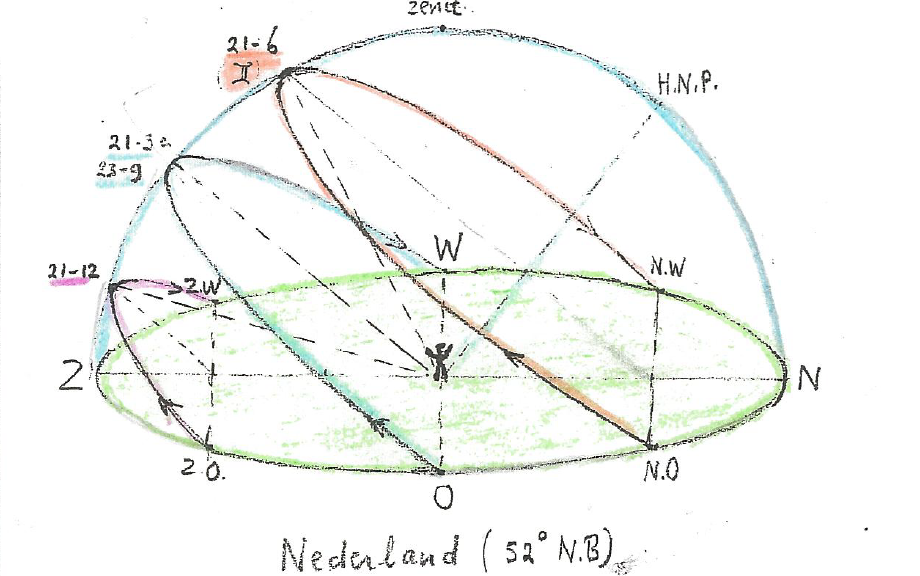 zenit.
21-6
II
H.N.P.
21-3 en
23-9
W
N.W
21-12
Z.W
Z
N
Z.O.
N.O
O
Nederland (52° N.B)